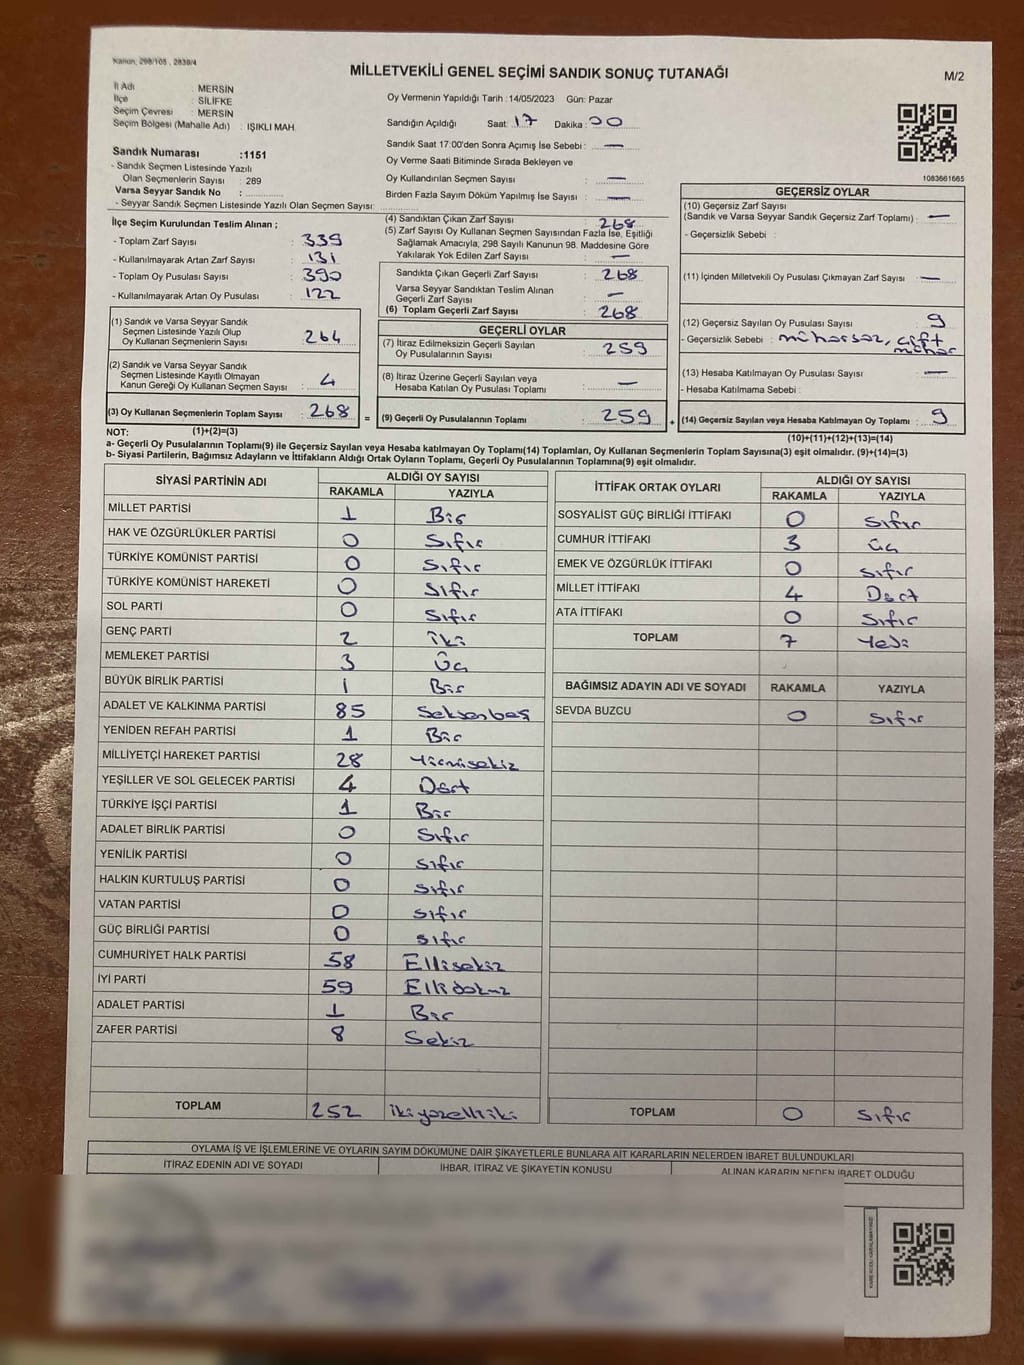 Kanun, 298/105 , 2839/4
MİLLETVEKİLİ GENEL SEÇİMİ SANDIK SONUÇ TUTANAĞI
M/2
İl Adı : MERSİN
İlçe : SİLİFKE
Seçim Çevresi : MERSİN
Seçim Bölgesi (Mahalle Adı) : IŞIKLI MAH.
Sandık Numarası :1151
- Sandık Seçmen Listesinde Yazılı
Olan Seçmenlerin Sayısı : 289
Varsa Seyyar Sandık No :
- Seyyar Sandık Seçmen Listesinde Yazılı Olan Seçmen Sayısı:
Oy Vermenin Yapıldığı Tarih :14/05/2023 Gün: Pazar
Sandığın Açıldığı Saat: 17 Dakika: 00
Sandık Saat 17:00'den Sonra Açımış İse Sebebi : —
Oy Verme Saati Bitiminde Sırada Bekleyen ve
Oy Kullandırılan Seçmen Sayısı : —
Birden Fazla Sayım Döküm Yapılmış İse Sayısı : —
1083661665
İlçe Seçim Kurulundan Teslim Alınan ;
- Toplam Zarf Sayısı : 339
- Kullanılmayarak Artan Zarf Sayısı : 131
- Toplam Oy Pusulası Sayısı : 390
- Kullanılmayarak Artan Oy Pusulası : 122
(1) Sandık ve Varsa Seyyar Sandık
Seçmen Listesinde Yazılı Olup
Oy Kullanan Seçmenlerin Sayısı : 264
(2) Sandık ve Varsa Seyyar Sandık
Seçmen Listesinde Kayıtlı Olmayan
Kanun Gereği Oy Kullanan Seçmen Sayısı : 4
(3) Oy Kullanan Seçmenlerin Toplam Sayısı : 268 =
(4) Sandıktan Çıkan Zarf Sayısı : 268
(5) Zarf Sayısı Oy Kullanan Seçmen Sayısından Fazla İse, Eşitliği
Sağlamak Amacıyla, 298 Sayılı Kanunun 98. Maddesine Göre
Yakılarak Yok Edilen Zarf Sayısı : —
Sandıkta Çıkan Geçerli Zarf Sayısı : 268
Varsa Seyyar Sandıktan Teslim Alınan
Geçerli Zarf Sayısı : —
(6) Toplam Geçerli Zarf Sayısı : 268
GEÇERLİ OYLAR
(7) İtiraz Edilmeksizin Geçerli Sayılan
Oy Pusulalarının Sayısı : 259
(8) İtiraz Üzerine Geçerli Sayılan veya
Hesaba Katılan Oy Pusulası Toplamı : —
(9) Geçerli Oy Pusulalarının Toplamı : 259 +
GEÇERSİZ OYLAR
(10) Geçersiz Zarf Sayısı
(Sandık ve Varsa Seyyar Sandık Geçersiz Zarf Toplamı) : —
- Geçersizlik Sebebi :
(11) İçinden Milletvekili Oy Pusulası Çıkmayan Zarf Sayısı : —
(12) Geçersiz Sayılan Oy Pusulası Sayısı : 9
- Geçersizlik Sebebi : mühürsüz, çift
mühür
(13) Hesaba Katılmayan Oy Pusulası Sayısı : —
- Hesaba Katılmama Sebebi :
(14) Geçersiz Sayılan veya Hesaba Katılmayan Oy Toplamı : 9
NOT: (1)+(2)=(3)
(10)+(11)+(12)+(13)=(14)
a- Geçerli Oy Pusulalarının Toplamı(9) ile Geçersiz Sayılan veya Hesaba katılmayan Oy Toplamı(14) Toplamları, Oy Kullanan Seçmenlerin Toplam Sayısına(3) eşit olmalıdır. (9)+(14)=(3)
b- Siyasi Partilerin, Bağımsız Adayların ve İttifakların Aldığı Ortak Oyların Toplamı, Geçerli Oy Pusulalarının Toplamına(9) eşit olmalıdır.
SİYASİ PARTİNİN ADI ALDIĞI OY SAYISI
RAKAMLA YAZIYLA
MİLLET PARTİSİ 1 Bir
HAK VE ÖZGÜRLÜKLER PARTİSİ 0 Sıfır
TÜRKİYE KOMÜNİST PARTİSİ 0 Sıfır
TÜRKİYE KOMÜNİST HAREKETİ 0 Sıfır
SOL PARTİ 0 Sıfır
GENÇ PARTİ 2 iki
MEMLEKET PARTİSİ 3 Üç
BÜYÜK BİRLİK PARTİSİ 1 Bir
ADALET VE KALKINMA PARTİSİ 85 Seksenbeş
YENİDEN REFAH PARTİSİ 1 Bir
MİLLİYETÇİ HAREKET PARTİSİ 28 Yirmisekiz
YEŞİLLER VE SOL GELECEK PARTİSİ 4 Dört
TÜRKİYE İŞÇİ PARTİSİ 1 Bir
ADALET BİRLİK PARTİSİ 0 Sıfır
YENİLİK PARTİSİ 0 sıfır
HALKIN KURTULUŞ PARTİSİ 0 sıfır
VATAN PARTİSİ 0 sıfır
GÜÇ BİRLİĞİ PARTİSİ 0 sıfır
CUMHURİYET HALK PARTİSİ 58 Ellisekiz
İYİ PARTİ 59 Ellidokuz
ADALET PARTİSİ 1 Bir
ZAFER PARTİSİ 8 Sekiz
TOPLAM 252 ikiyüzelliiki
İTTİFAK ORTAK OYLARI ALDIĞI OY SAYISI
RAKAMLA YAZIYLA
SOSYALIST GÜÇ BİRLİĞİ İTTİFAKI 0 sıfır
CUMHUR İTTİFAKI 3 üç
EMEK VE ÖZGÜRLÜK İTTİFAKI 0 sıfır
MİLLET İTTİFAKI 4 Dört
ATA İTTİFAKI 0 sıfır
TOPLAM 7 Yedi
BAĞIMSIZ ADAYIN ADI VE SOYADI RAKAMLA YAZIYLA
SEVDA BUZCU 0 sıfır
TOPLAM 0 sıfır
OYLAMA İŞ VE İŞLEMLERİNE VE OYLARIN SAYIM DÖKÜMÜNE DAİR ŞİKAYETLERLE BUNLARA AİT KARARLARIN NELERDEN İBARET BULUNDUKLARI
İTİRAZ EDENİN ADI VE SOYADI İHBAR, İTİRAZ VE ŞİKAYETİN KONUSU ALINAN KARARIN NEDEN İBARET OLDUĞU